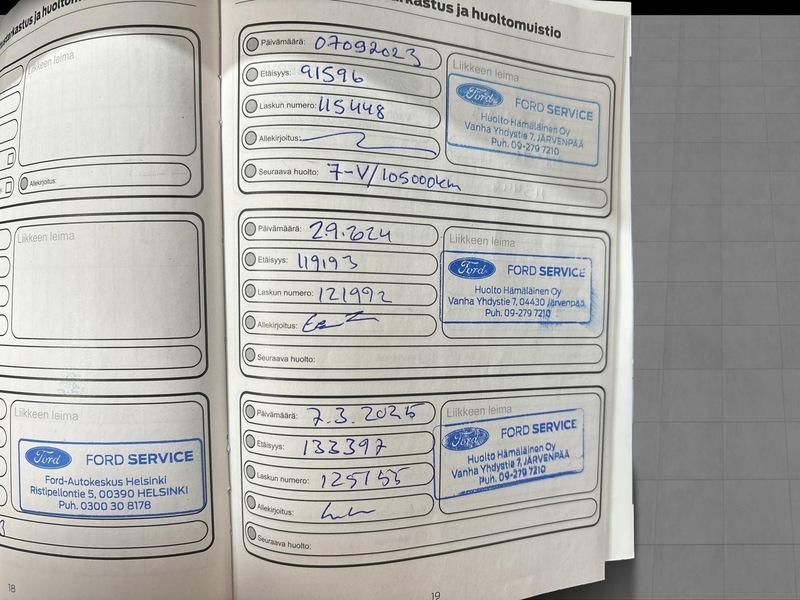 Liikkeen leima
Allekirjoitus:
Liikkeen leima
Liikkeen leima
Ford
FORD SERVICE
Ford-Autokeskus Helsinki
Ristipellontie 5, 00390 HELSINKI
Puh. 0300 30 8178
18
ja huoltomuistio
Päivämäärä: 07092023
Etäisyys: 91596
Laskun numero: 115448
Allekirjoitus:
Seuraava huolto: 7-V/105000km
Liikkeen leima
Ford
FORD SERVICE
Huolto Hämäläinen Oy
Vanha Yhdystie 7, JÄRVENPÄÄ
Puh. 09-279 7210
Päivämäärä: 2.9.2024
Etäisyys: 119193
Laskun numero: 121992
Allekirjoitus:
Seuraava huolto:
Liikkeen leima
Ford
FORD SERVICE
Huolto Hämäläinen Oy
Vanha Yhdystie 7, 04430 Järvenpää
Puh. 09-279 7210
Päivämäärä: 7.3.2025
Etäisyys: 133397
Laskun numero: 125155
Allekirjoitus:
Seuraava huolto:
Liikkeen leima
Ford
FORD SERVICE
Huolto Hämäläinen Oy
Vanha Yhdystie 7, JÄRVENPÄÄ
Puh. 09-279 7210
19